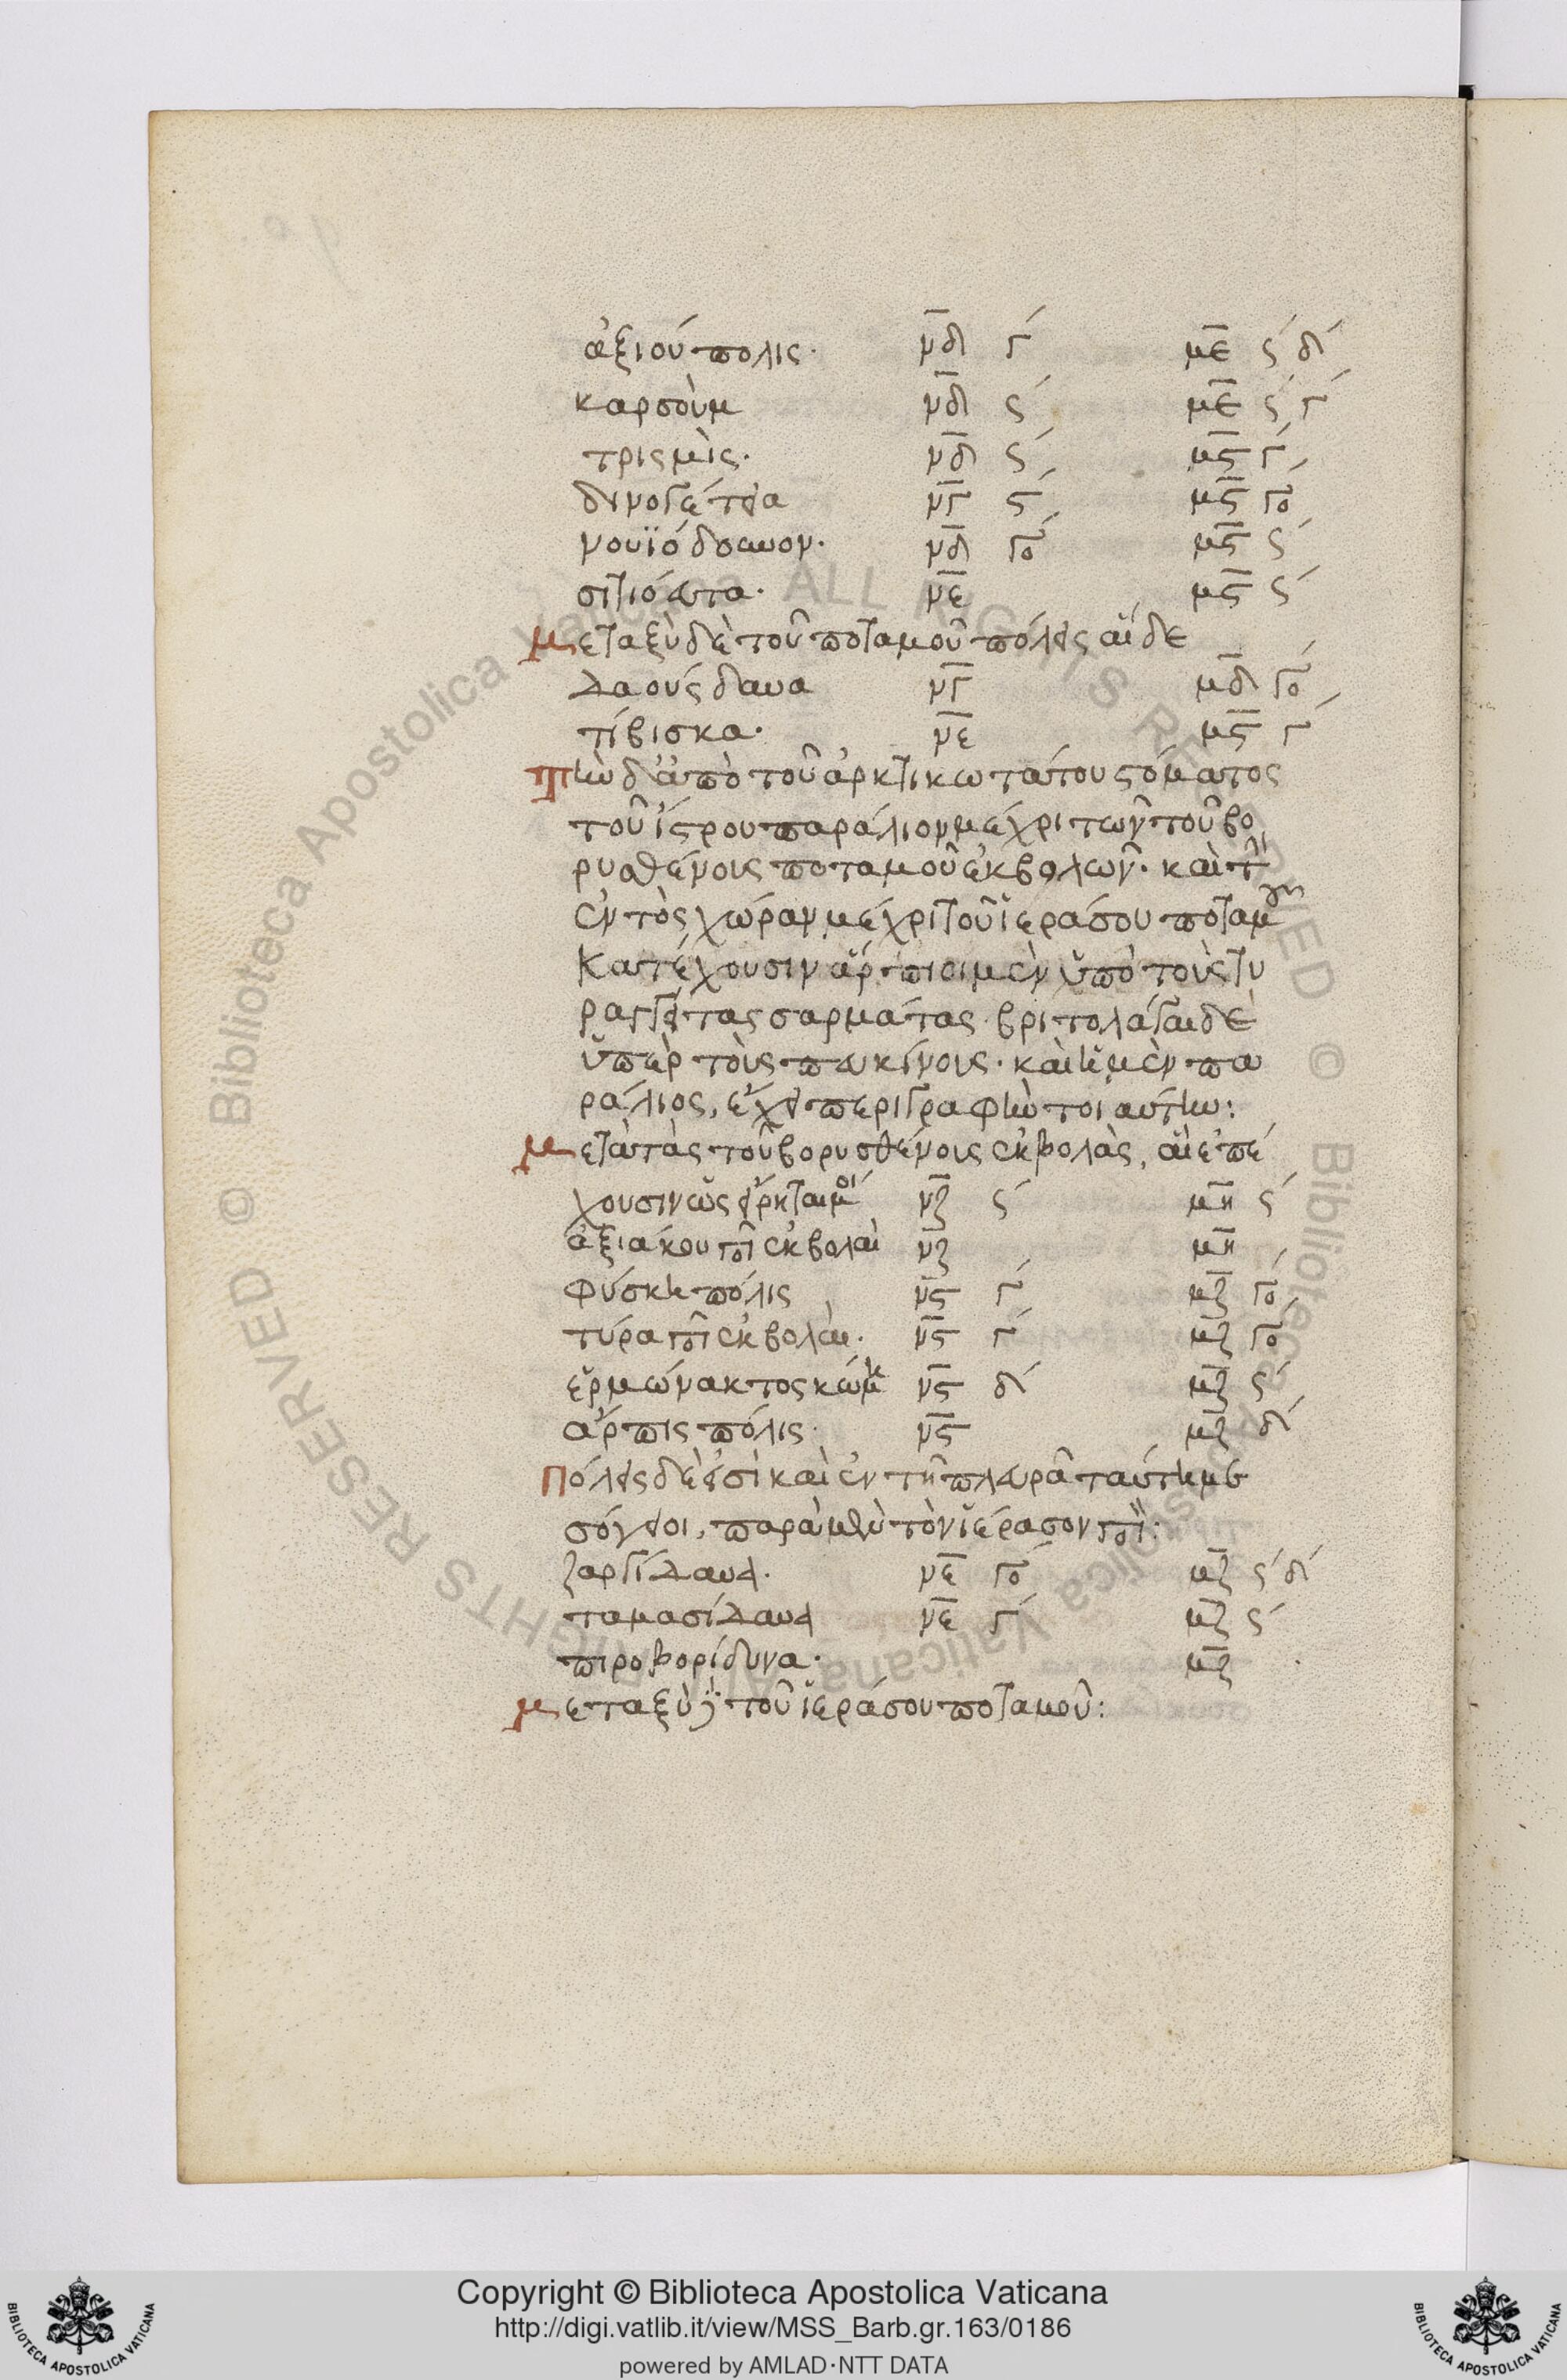 ἀξιούπολις· ν̅δ̅ γ´ μ̅ε̅ ϛ´ δ´
καρσοὺμ ν̅δ̅ ϛ´ μ̅ε̅ ϛ´ γ´
τρισμὶς· ν̅δ̅ ϛ´ μ̅ϛ̅ γ´
δινογέτεια ν̅γ̅ ϛ´ μ̅ϛ̅ γο´
νουϊόδουνον· ν̅δ̅ γο´ μ̅ϛ̅ ϛ´
σιτιόεντα· ν̅ε̅ μ̅ϛ̅ ϛ´
μεταξὺ δὲ τοῦ ποταμοῦ πόλεις αἵδε
δαούσδαυα ν̅γ̅ μ̅δ̅ γο´
τίβισκα· ν̅ε̅ μ̅ϛ̅ γ´
τὴν δ' ἀπὸ τοῦ ἀρκτικωτάτου στόματος
τοῦ ἴστρου παράλιον μέχρι τῶν τοῦ βο
ρυσθένους ποταμοῦ ἐκβολῶν· καὶ τ̂
ἐντὸς χώραν μέχρι τοῦ ἱεράσου ποταμοῦ
κατέχουσιν ἅρπιοι μὲν ὑπὸ τοὺς τυ
ραγγέτας σαρμάτας· βριτολάγαι δὲ
ὑπὲρ τοὺς πευκίνους· καὶ ἡ μὲν πα
ράλιος, ἔχει περιγραφὴν τοιαύτην:
μετὰ τὰς τοῦ βορυσθένους ἐκβολὰς, αἳ ἐπέ
χουσιν ὡς εἴρηται μοί ν̅ζ̅ ϛ´ μ̅η̅ ϛ´
ἀξιάκου πο ἐκβολαὶ ν̅ζ̅ μ̅η̅
φύσκη πόλις ν̅ϛ̅ γ´ μ̅ζ̅ γο´
τύρα πο ἐκβολαὶ· ν̅ϛ̅ γ´ μ̅ζ̅ γο´
ἑρμώνακτος κώμη ν̅ϛ̅ δ´ μ̅ζ̅ ϛ´
ἅρπις πόλις· ν̅ϛ̅ μ̅ζ̅ δ´
πόλεις δὲ εἰσὶ καὶ ἐν τῆ πλευρᾶ ταύτη με
σόγειοι, παρὰ μὲν τὸν ἱέρασον πο:
ζαργίδαυα· ν̅ε̅ γο´ μ̅ζ̅ ϛ´ δ´
ταμασίδαυα ν̅ε̅ γ´ μ̅ζ̅ ϛ´
πιροβορίδυνα· μ̅ζ̅
μεταξὺ δὲ τοῦ ἱεράσου ποταμοῦ:
Copyright © Biblioteca Apostolica Vaticana
http://digi.vatlib.it/view/MSS_Barb.gr.163/0186
powered by AMLAD·NTT DATA